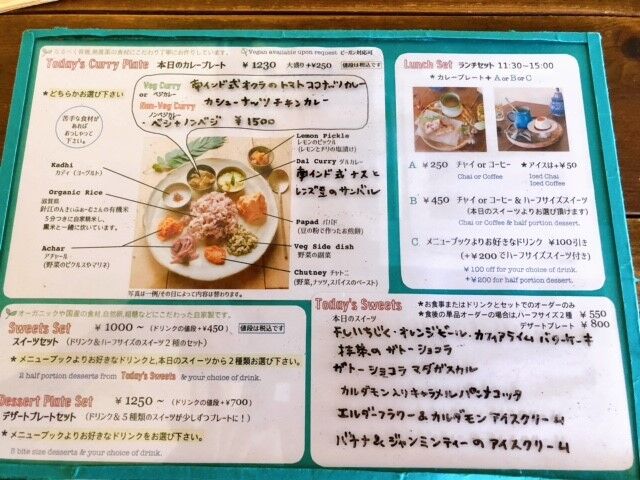 なるべく有機、無農薬の食材にこだわり丁寧にお作りしています。
Vegan available upon request ビーガン対応可
Today's Curry Plate 本日のカレープレート ¥1230 大盛り+¥250 値段は税込です
★どちらかお選び下さい
Veg Curry
or ベジカレー
南インド式オクラのトマトココナッツカレー
Non-Veg Curry
ノンベジカレー
カシューナッツチキンカレー
・ベジ+ノンベジ ¥1500
苦手な食材が
あれば
おっしゃって
下さい。
Kadhi
カディ(ヨーグルト)
Organic Rice
滋賀県
針江のんきぃふぁーむさんの有機米
5分づきに自家精米し、
黒米と一緒に炊いています。
Achar
アチャール
(野菜のピクルスやマリネ)
Lemon Pickle
レモンのピックル
(レモンとチリの塩漬け)
Dal Curry ダルカレー
南インド式ナスと
レンズ豆のサンバル
Papad パパド
(豆の粉で作ったお煎餅)
Veg Side dish
野菜の副菜
Chutney チャトニ
(野菜,ナッツ,スパイスのペースト)
写真は一例/その日によって内容は替わります。
Lunch Set ランチセット 11:30~15:00
★カレープレート+ A or B or C
A ¥250 チャイ or コーヒー ★アイスは+¥50
Chai or Coffee
Iced Chai
Iced Coffee
B ¥450 チャイ or コーヒー & ハーフサイズスイーツ
(本日のスイーツよりお選び頂けます)
Chai or Coffee & half portion dessert.
C メニューブックよりお好きなドリンク ¥100引き
(+¥200でハーフサイズスイーツ付き)
¥100 off for your choice of drink.
+¥200 for half portion dessert.
オーガニックや国産の食材,自然卵,粗糖などにこだわった自家製です。
Sweets Set ¥1000~ (ドリンクの値段+¥450) 値段は税込です
スイーツセット (ドリンク&ハーフサイズのスイーツ2種のセット)
★メニューブックよりお好きなドリンクと,本日のスイーツから2種類お選び下さい。
2 half portion desserts from Today's Sweets & your choice of drink.
Dessert Plate Set ¥1250~ (ドリンクの値段+¥700)
デザートプレートセット (ドリンク&5種類のスイーツが少しずつプレートに!)
★メニューブックよりお好きなドリンクをお選び下さい。
5 bite size desserts & your choice of drink.
Today's Sweets
本日のスイーツ
★お食事またはドリンクとセットでのオーダーのみ
★食後の単品オーダーの場合はハーフサイズ2種 ¥550
デザートプレート ¥800
干しいちじくとオレンジピール・カフィアライムパウンドケーキ
抹茶のガトーショコラ
ガトーショコラ マダガスカル
カルダモン入りキャラメルパンナコッタ
エルダーフラワー&カルダモンアイスクリーム
バナナ&ジャンミンティーのアイスクリーム